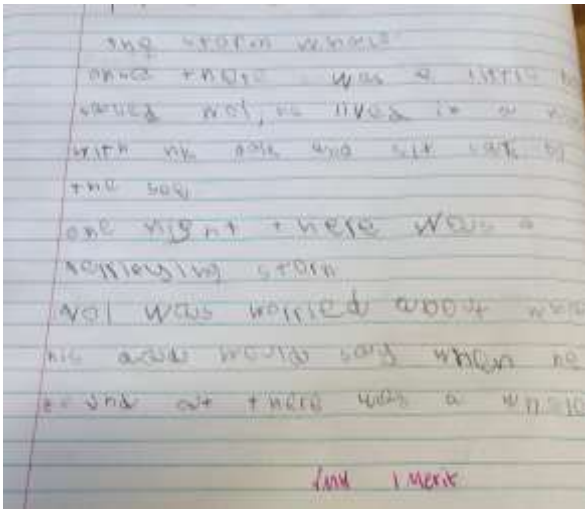 the storm whale
once there was a little
called nol, he lives in a
with his dad and six cats by
the sea
one night there was a
storm
Nol was worried about
his dad would say when he
found out there was a whale
1 Merit